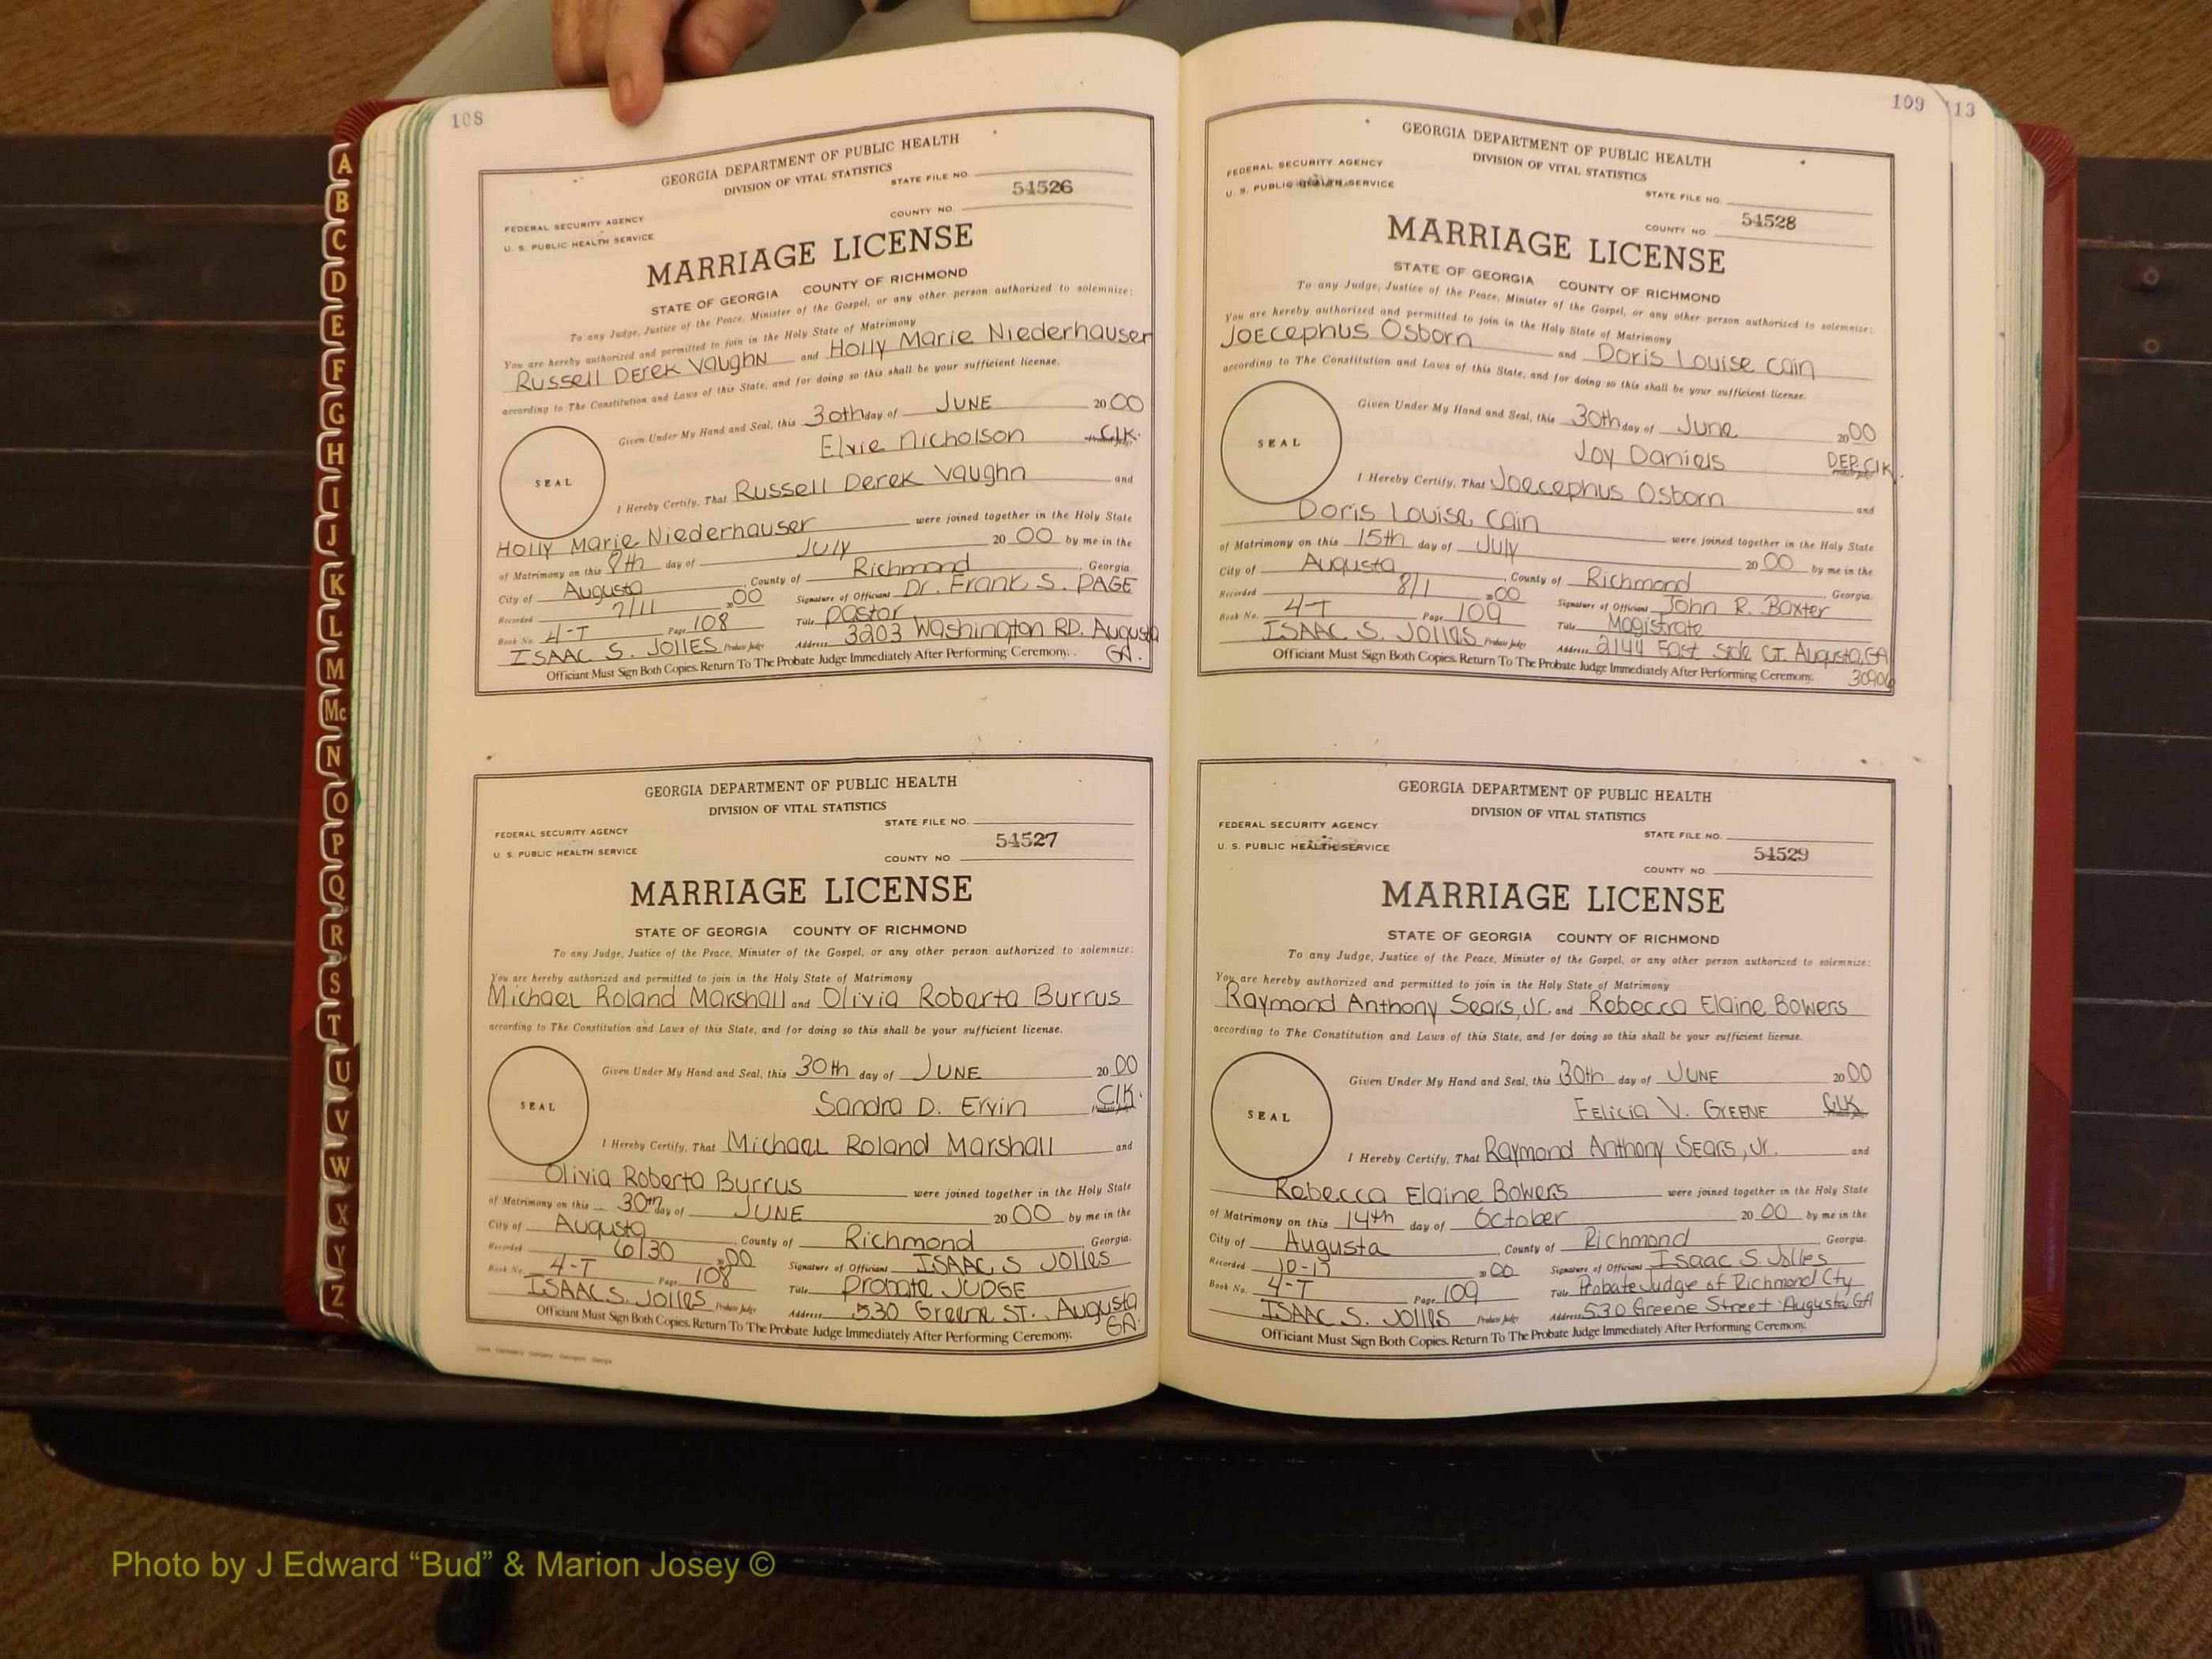 108
GEORGIA DEPARTMENT OF PUBLIC HEALTH
DIVISION OF VITAL STATISTICS
STATE FILE NO.
54526
FEDERAL SECURITY AGENCY
COUNTY NO.
U. S. PUBLIC HEALTH SERVICE
MARRIAGE LICENSE
STATE OF GEORGIA COUNTY OF RICHMOND
To any Judge, Justice of the Peace, Minister of the Gospel, or any other person authorized to solemnize:
You are hereby authorized and permitted to join in the Holy State of Matrimony
Russell Derek Vaughn and Holly Marie Niederhauser
according to The Constitution and Laws of this State, and for doing so this shall be your sufficient license.
Given Under My Hand and Seal, this 30th day of JUNE 2000
Elvie Nicholson Clk.
SEAL
I Hereby Certify, That Russell Derek Vaughn and
Holly Marie Niederhauser were joined together in the Holy State
of Matrimony on this 8th day of July 2000 by me in the
City of Augusta, County of Richmond, Georgia.
Recorded 7/11 2000 Signature of Officiant Dr. Frank S. PAGE
Book No. 4-T Page 108 Title Pastor
ISAAC S. JOLLES Probate Judge Address 3203 Washington RD. Augusta
GA.
Officiant Must Sign Both Copies. Return To The Probate Judge Immediately After Performing Ceremony.
GEORGIA DEPARTMENT OF PUBLIC HEALTH
DIVISION OF VITAL STATISTICS
STATE FILE NO.
FEDERAL SECURITY AGENCY
54527
U. S. PUBLIC HEALTH SERVICE
COUNTY NO.
MARRIAGE LICENSE
STATE OF GEORGIA COUNTY OF RICHMOND
To any Judge, Justice of the Peace, Minister of the Gospel, or any other person authorized to solemnize:
You are hereby authorized and permitted to join in the Holy State of Matrimony
Michael Roland Marshall and Olivia Roberta Burrus
according to The Constitution and Laws of this State, and for doing so this shall be your sufficient license.
Given Under My Hand and Seal, this 30th day of JUNE 2000
Sandra D. Ervin Clk.
SEAL
I Hereby Certify, That Michael Roland Marshall and
Olivia Roberta Burrus were joined together in the Holy State
of Matrimony on this 30th day of JUNE 2000 by me in the
City of Augusta, County of Richmond, Georgia.
Recorded 6/30 2000 Signature of Officiant ISAAC S JOLLES
Book No. 4-T Page 108 Title Probate JUDGE
ISAAC S. JOLLES Probate Judge Address 530 Greene ST., Augusta
GA.
Officiant Must Sign Both Copies. Return To The Probate Judge Immediately After Performing Ceremony.
109
113
GEORGIA DEPARTMENT OF PUBLIC HEALTH
DIVISION OF VITAL STATISTICS
FEDERAL SECURITY AGENCY
U. S. PUBLIC HEALTH SERVICE
STATE FILE NO.
54528
COUNTY NO.
MARRIAGE LICENSE
STATE OF GEORGIA COUNTY OF RICHMOND
To any Judge, Justice of the Peace, Minister of the Gospel, or any other person authorized to solemnize:
You are hereby authorized and permitted to join in the Holy State of Matrimony
Joecephus Osborn and Doris Louise Cain
according to The Constitution and Laws of this State, and for doing so this shall be your sufficient license.
Given Under My Hand and Seal, this 30th day of June 2000
Joy Daniels DEP. Clk.
SEAL
I Hereby Certify, That Joecephus Osborn and
Doris Louise Cain were joined together in the Holy State
of Matrimony on this 15th day of July 2000 by me in the
City of Augusta, County of Richmond, Georgia.
Recorded 8/1 2000 Signature of Officiant John R. Baxter
Book No. 4-T Page 109 Title Magistrate
ISAAC S. JOLLES Probate Judge Address 2144 East Side CT. Augusta, GA
30906
Officiant Must Sign Both Copies. Return To The Probate Judge Immediately After Performing Ceremony.
GEORGIA DEPARTMENT OF PUBLIC HEALTH
DIVISION OF VITAL STATISTICS
FEDERAL SECURITY AGENCY
STATE FILE NO.
U. S. PUBLIC HEALTH SERVICE
54529
COUNTY NO.
MARRIAGE LICENSE
STATE OF GEORGIA COUNTY OF RICHMOND
To any Judge, Justice of the Peace, Minister of the Gospel, or any other person authorized to solemnize:
You are hereby authorized and permitted to join in the Holy State of Matrimony
Raymond Anthony Sears, Jr. and Rebecca Elaine Bowers
according to The Constitution and Laws of this State, and for doing so this shall be your sufficient license.
Given Under My Hand and Seal, this 30th day of JUNE 2000
Felicia V. GREENE Clk
SEAL
I Hereby Certify, That Raymond Anthony Sears, Jr. and
Rebecca Elaine Bowers were joined together in the Holy State
of Matrimony on this 14th day of October 2000 by me in the
City of Augusta, County of Richmond, Georgia.
Recorded 10-17 2000 Signature of Officiant Isaac S. Jolles
Book No. 4-T Page 109 Title Probate Judge of Richmond Cty
ISAAC S. JOLLES Probate Judge Address 530 Greene Street Augusta, GA
Officiant Must Sign Both Copies. Return To The Probate Judge Immediately After Performing Ceremony.
A
B
C
D
E
F
G
H
I
J
K
L
M
Mc
N
O
P
Q
R
S
T
U
V
W
X
Y
Z
Photo by J Edward “Bud” & Marion Josey ©